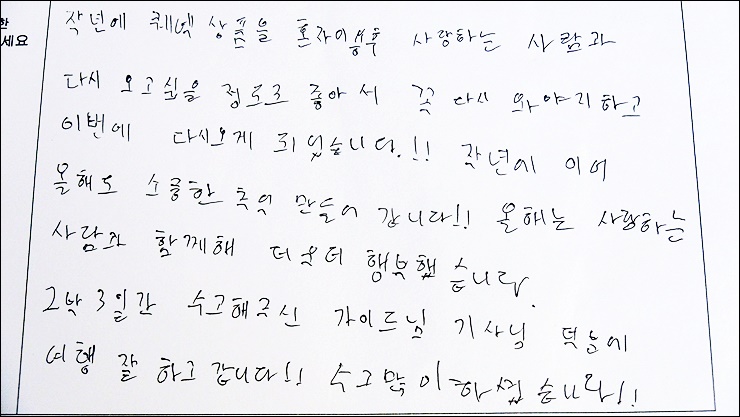 한
세요
작년에 퀘벡 상품을 혼자이용후 사랑하는 사람과
다시 오고싶을 정도로 좋아서 꼭 다시 와야지하고
이번에 다시오게 되었습니다.!! 작년에 이어
올해도 소중한 추억 만들어 갑니다!! 올해는 사랑하는
사람과 함께해 더욱더 행복했습니다.
2박3일간 수고해주신 가이드님 기사님 덕분에
여행 잘 하고 갑니다!! 수고많이하셨습니다!!